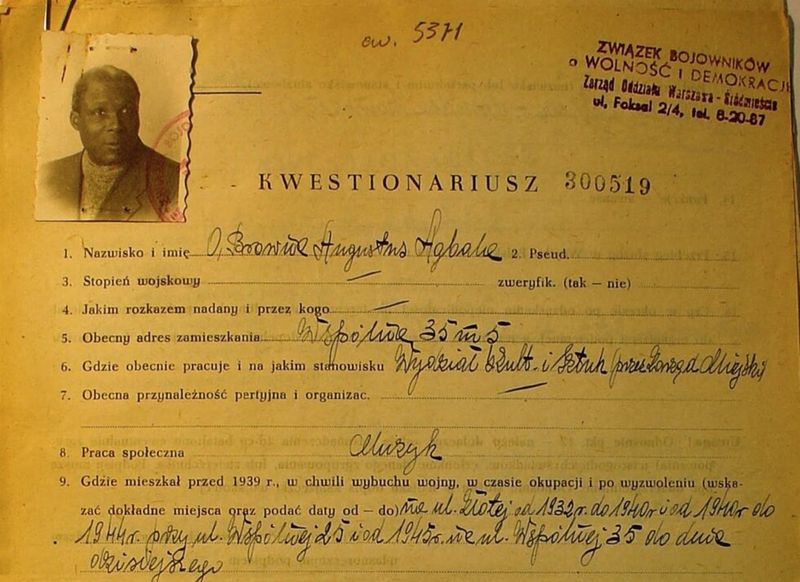 ew. 5371
ZWIĄZEK BOJOWNIKÓW
o WOLNOŚĆ i DEMOKRACJĘ
Zarząd Oddziału Warszawa - Śródmieście
ul. Foksal 2/4, tel. 6-20-87
KWESTIONARIUSZ 300519
1. Nazwisko i imię O, Browne Augustus Agbale 2. Pseud.
3. Stopień wojskowy — zweryfik. (tak – nie)
4. Jakim rozkazem nadany i przez kogo —
5. Obecny adres zamieszkania Wspólna 35 m 5
6. Gdzie obecnie pracuje i na jakim stanowisku Wydział Kult. i Sztuk (przez Zarząd Miejski)
7. Obecna przynależność partyjna i organizac. —
8. Praca społeczna Muzyk
9. Gdzie mieszkał przed 1939 r., w chwili wybuchu wojny, w czasie okupacji i po wyzwoleniu (wska-
zać dokładne miejsca oraz podać daty od – do) na ul. Złotej od 1932 r. do 1940 r i od 1940 r do
1944 r. przy ul. Wspólnej 25 i od 1945 r. na ul. Wspólnej 35 do dnia
dzisiejszego